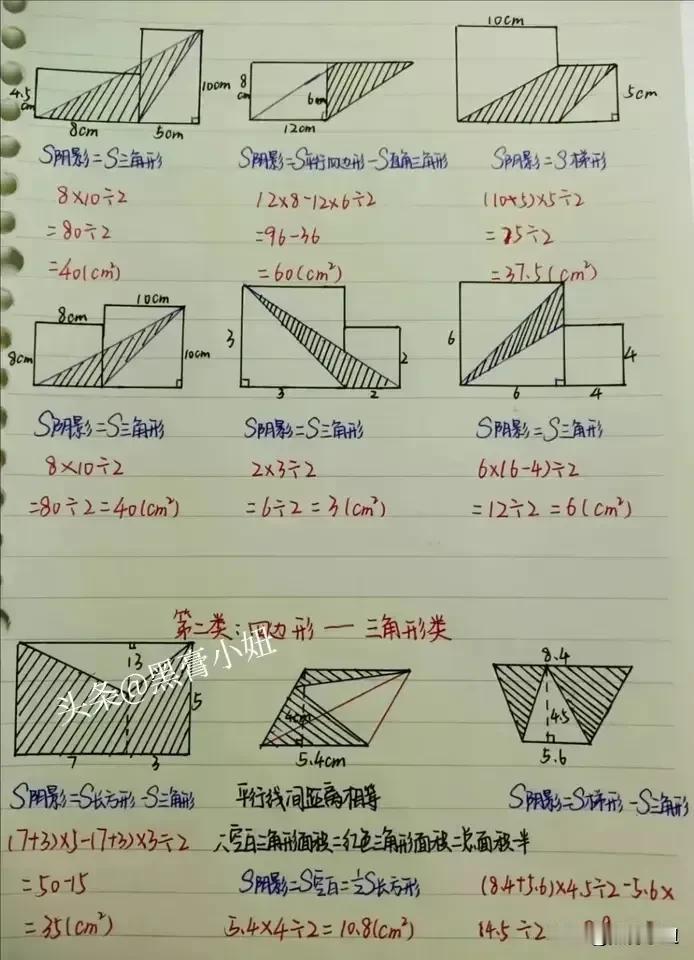 10cm
4.5cm
10cm
8cm
5cm
8cm
6cm
12cm
5cm
S阴影=S三角形
S阴影=S平行四边形-S直角三角形
S阴影=S梯形
8×10÷2
12×8-12×6÷2
(10+5)×5÷2
=80÷2
=96-36
=75÷2
=40(cm²)
=60(cm²)
=37.5(cm²)
8cm
10cm
8cm
10cm
3
3
2
2
6
6
4
4
S阴影=S三角形
S阴影=S三角形
S阴影=S三角形
8×10÷2
2×3÷2
6×(6-4)÷2
=80÷2=40(cm²)
=6÷2=3(cm²)
=12÷2=6(cm²)
第二类:四边形—三角形类
头条@黑膏小妞
13
5
7
3
4cm
5.4cm
8.4
4.5
5.6
S阴影=S长方形-S三角形
平行线间距离相等
S阴影=S梯形-S三角形
(7+3)×5-(7+3)×3÷2
∴空白三角形面积=红色三角形面积=总面积一半
=50-15
S阴影=S空白=½S长方形
(8.4+5.6)×4.5÷2-5.6×
=35(cm²)
5.4×4÷2=10.8(cm²)
4.5÷2